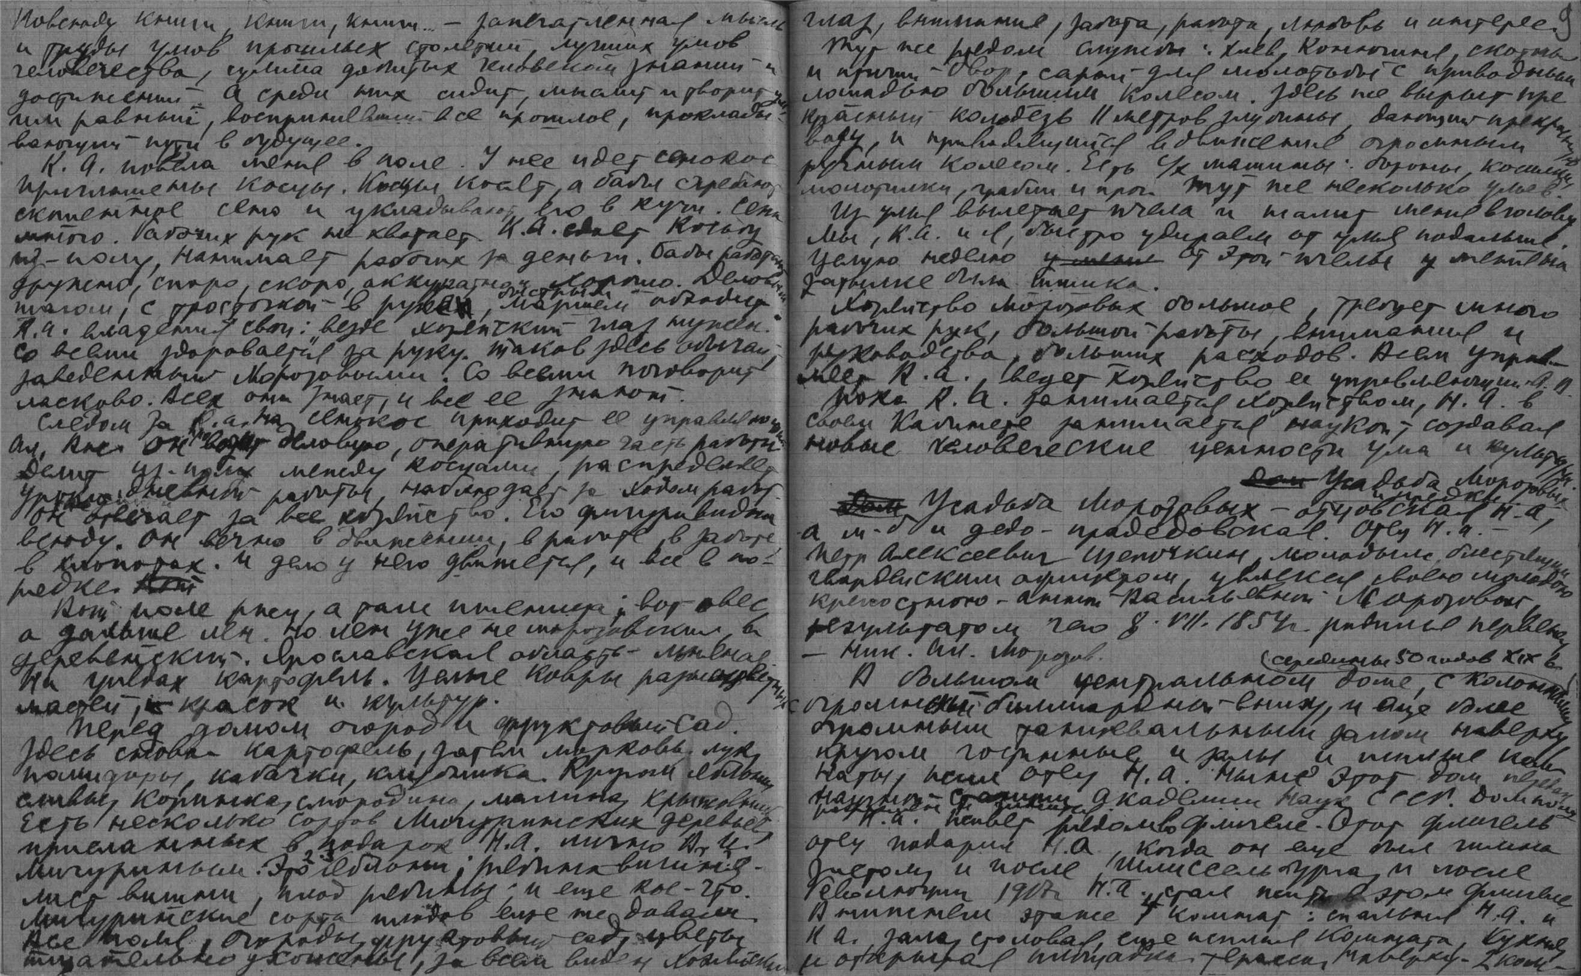 Повсюду книги, книги, книги... – запечатленная мысль
и труды умов прошлых столетий, лучших умов
человечества, сумма добытых человеком знаний и
достижений. А среди них сидит, мыслит и творит
им равный, воспринявший все прошлое, проклады-
вающий пути в будущее.
К.А. повела меня в поле. У нее идет сенокос
приглашены косцы. Косцы косят, а бабы сгребают
скошенное сено и укладывают его в кучи. Сена
много. Рабочих рук не хватает. К.А. сдает косьбу
из-полу, нанимает рабочих за деньги. Бабы работают
дружно, споро, скоро, аккуратно и хорошо. Деловым
шагом, с тросточкой в руках, быстрым маршем обходит
К.А. владения свои: везде хозяйский глаз нужен.
Со всеми здоровается за руку. Таков здесь обычай,
заведенный Морозовыми. Со всеми поговорит
ласково. Всех она знает, и все ее знают.
Следом за К.А. на сенокос приходит ее управляющий
Он ведет деловую, оперативную часть работы
делит из-полу между косцами, распределяет
уроки дневной работы, наблюдает за ходом работ.
Он отвечает за все хозяйство. Его фигура видна
всюду. Он вечно в движении, в работе, в заботе,
в хлопотах. И дело у него движется, и все в по-
рядке.
Вот поле ржи, а там пшеница; вот овес,
а дальше лен. Но лен уже не морозовский, а
деревенский. Ярославская область – льняная.
На грядах картофель. Целые ковры разноцветных
мастей, красок и культур.
Перед домом огород и фруктовый сад.
Здесь снова картофель, затем морковь, лук,
помидоры, кабачки, клубника. Кругом яблони,
сливы, коринка, смородина, малина, крыжовник
Есть несколько сортов Мичуринских деревьев,
присланных в подарок Н.А. лично И.В.
Мичуриным. Это яблони; рябина-вишня –
лист вишни, плод рябины; и еще кое-что.
Мичуринские сорта плодов еще не давали.
Все поля, огороды, фруктовый сад, цветы
тщательно ухожены, за всем виден хозяйский
9
глаз, внимание, забота, работа, любовь и интерес.
Тут же рядом службы: хлев, конюшня, скотный
и птичий двор, сарай для молотьбы с приводным
лошадью большим колесом. Здесь же вырыт пре-
красный колодезь 11 метров глубины, дающий прекрасную
воду, и приводящийся в движение огромным
ручным колесом. Есть с/х машины: бороны, косилки,
молотилки, грабли и проч. Тут же несколько ульев.
Из улья вылетает пчела и жалит меня в голову
Мы, К.А. и я, быстро удираем от улья подальше.
Целую неделю от этой пчелы у меня на
затылке была шишка.
Хозяйство Морозовых большое, требует много
рабочих рук, большой работы, внимания и
руководства, больших расходов. Всем управ-
ляет К.А., ведет хозяйство ее управляющий
Пока К.А. занимается хозяйством, Н.А. в
своем кабинете занимается наукой, создавая
новые человеческие ценности ума и культуры.
Усадьба Морозовых
Усадьба Морозовых – отцовская Н.А.,
а м.б. и дедо-прадедовская. Отец Н.А.
Петр Алексеевич Щепочкин, молодым, блестящим
гвардейским офицером, увлекся своею молодою
крепостною – Анной Васильевной Морозовой,
результатом чего 7.VII.1854г. родился первенец
– Ник. Ал. Морозов.
(середины 50 годов XIX в.)
В большом центральном доме, с колоннами
с огромной бильярдной внизу, и еще более
огромным танцевальным залом наверху,
кругом гостинные и залы и жилые ком-
наты, жил отец Н.А. Ныне этот дом передан
Академии наук СССР.
Н.А. живет рядом во флигеле. Этот флигель
отец подарил Н.А., когда он еще был гимна-
зистом, и после Шлиссельбурга, и после
революции 1917г Н.А. стал жить в этом флигеле
В нижнем этаже 7 комнат: спальня Н.А. и
К.А., зала, столовая, еще жилая комната, кухня
и открытая площадка-терраса. Наверху – 2 ком-